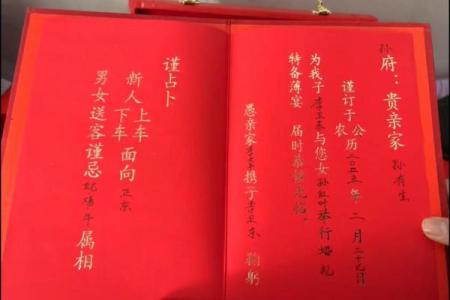 孙府：贵亲家 孙有生
谨订于 公 农历 二〇二五年 二月二十九日
为我子李卫东与您女孙红叶举行婚礼
特备薄宴 届时恭候光临。
愚亲家 携子李卫东 鞠躬
谨占卜
新人 上车 下车 面向 正东
男女送客谨忌 蛇 牛 属相